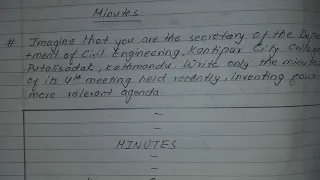 Minutes
# Imagine that you are the secretary of the Depa
tment of Civil Engineering, Kantipur City College
Putalisadak, Kathmandu. Write only the minutes
of its 4th meeting held recently, inventing four
more relevant agenda.
MINUTES